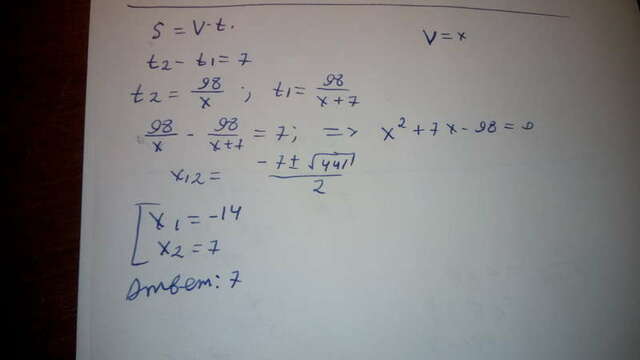 S = V·t.
V = x
t₂ - t₁ = 7
t₂ = 98/x ; t₁ = 98/(x+7)
98/x - 98/(x+7) = 7; => x² + 7x - 98 = 0
x₁,₂ = (-7 ± √441)/2
[ x₁ = -14
x₂ = 7
Ответ: 7